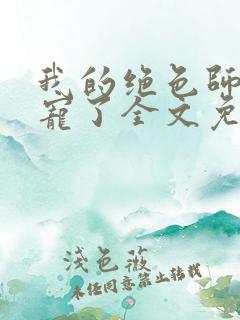 我的绝色師
寵了全文免
浅色薇
未经同意禁止转载